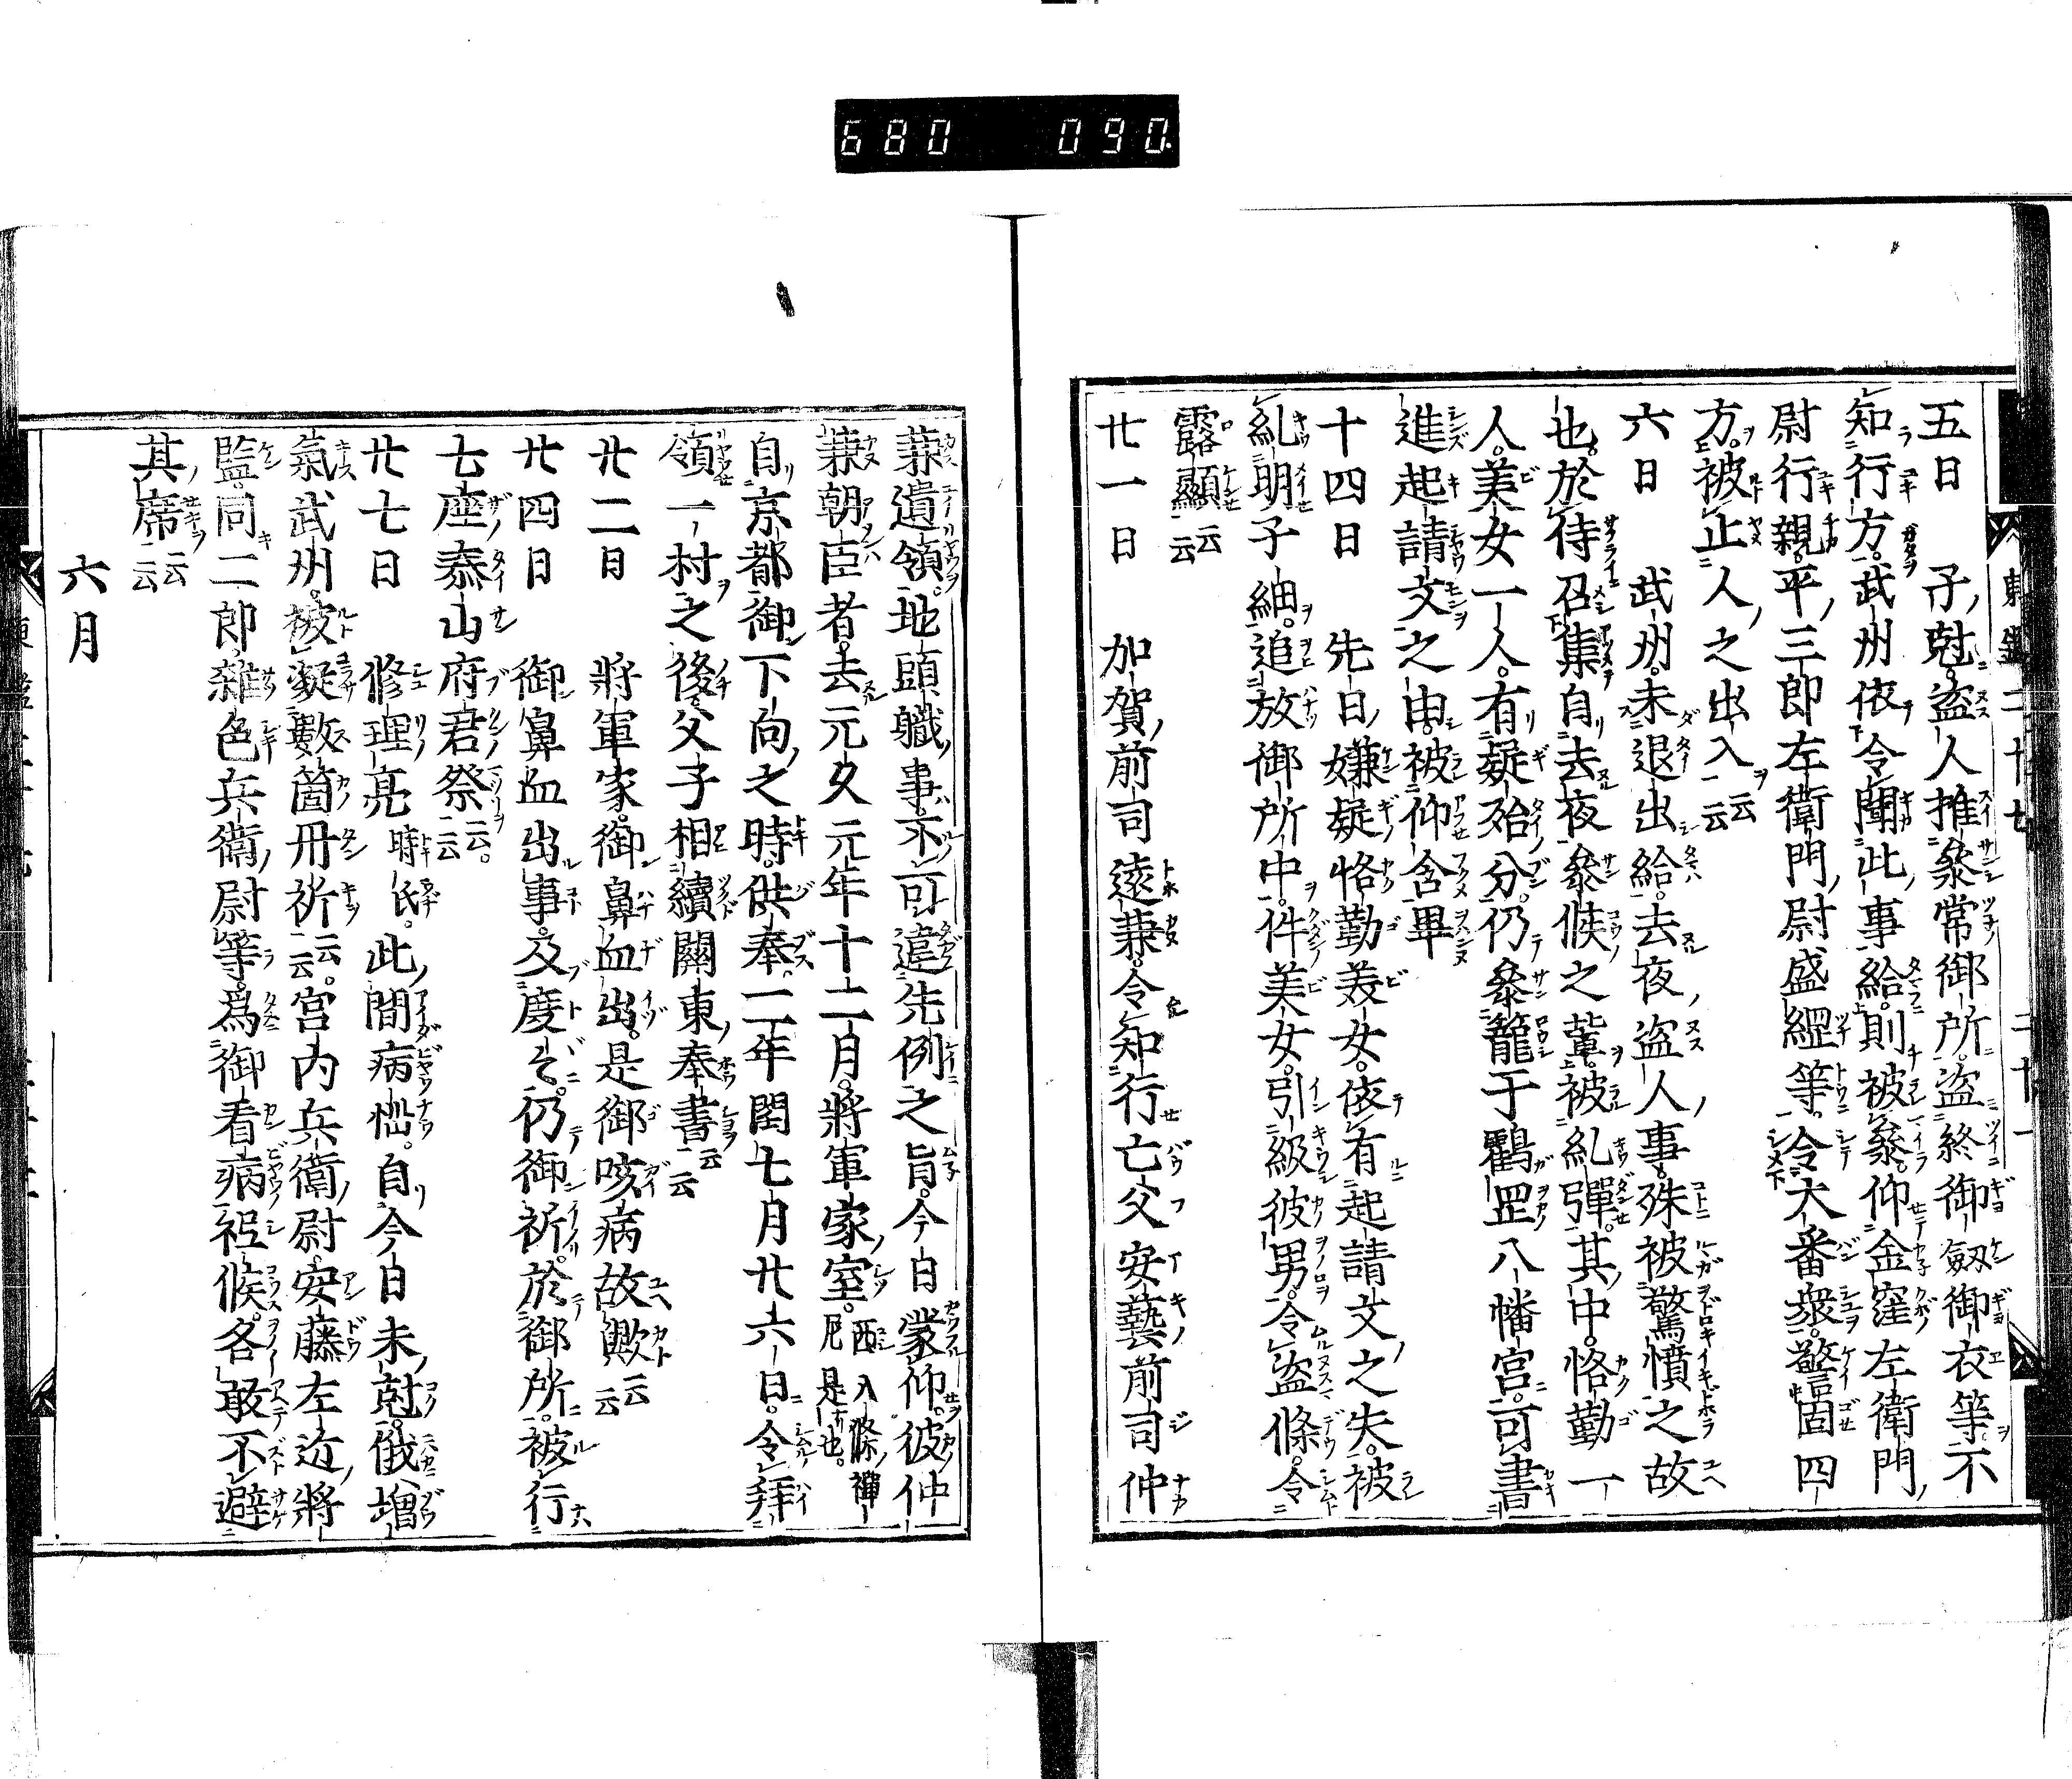 680 090
五日 子尅。盗人推參常御所。盗終御劔御衣等。不
知行方。武州依令聞此事給。則被參。仰金窪左衛門
尉行親。平三郎左衛門尉盛綱等。令大番衆。警固四
方。被止人之出入云云
六日 武州。未退出給。去夜盗人事。殊被驚憤之故
也。於侍召集自去夜參候之輩。被糺彈。其中。恪勤一
人。美女一人。有疑殆分。仍參籠于鶴罡八幡宮。可書
進起請文之由。被仰含畢
十四日 先日嫌疑恪勤美女。依有起請文之失。被
糺明子細。追放御所中。件美女。引級彼男。令盗條。令
露顯云云
廿一日 加賀前司遠兼。令知行亡父安藝前司仲
兼遺領。地頭職事。不可違先例之旨。今日蒙仰。彼仲
兼朝臣者。去元久元年十二月。將軍家室。西八條禪尼是也。
自京都御下向之時。供奉。二年閏七月廿六日。令拜
領一村之後。父子相續關東奉書云云
廿二日 將軍家。御鼻血出。是御咳病故歟云云
廿四日 御鼻血出事。及度々。仍御祈。於御所。被行
七座泰山府君祭云云。
廿七日 修理亮時氏。此間病惱。自今日未尅。俄增
氣。武州。被凝數箇丹祈云云。宮内兵衛尉。安藤左近將
監。同二郎。雜色兵衛尉等。爲御看病祗候。各敢不避
其席云云
六月